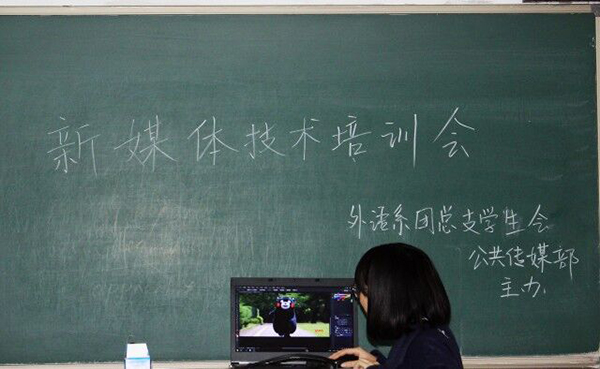 新媒体技术培训会
外语系团总支学生会
公共传媒部
主办